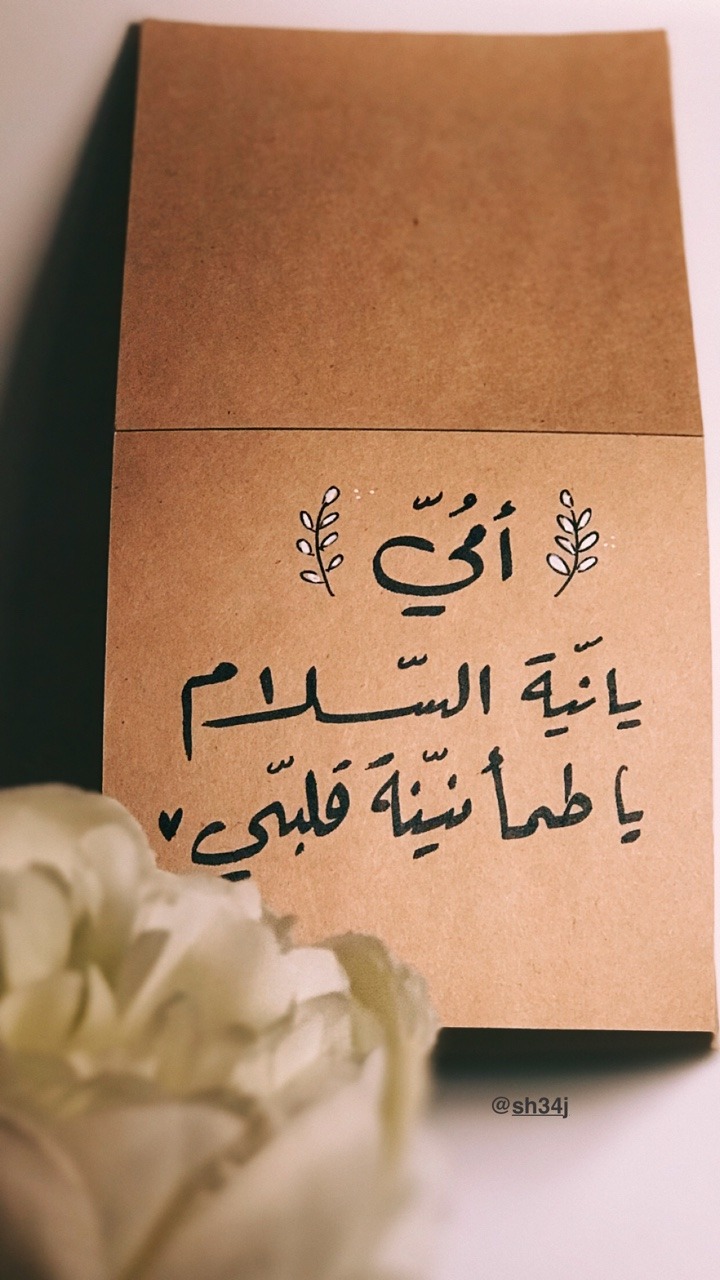 أمُّي
يانّية السّلام
يا طمأنينّةَ قلبّي ♥
@sh34j